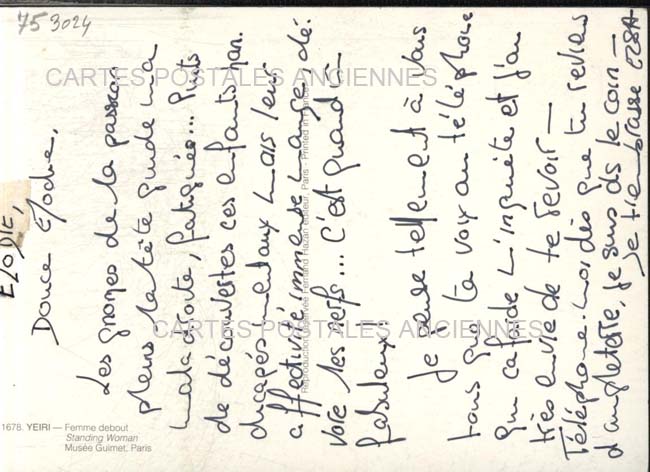 75 3024
CARTES POSTALES ANCIENNES
ELODIE,
Douce Elodie,
Les gnomes de la passion
pleins la tête guide ma
maladroite, fatiguée... Puits
de découvertes ces enfants han.
dicapés mentaux mais leur
affectivité immense mange, dé.
vore les nerfs... C'est quand même
fabuleux
Je pense tellement à vous
tous que ta voix au téléphone
un cafarde m'inquiète et j'ai
très envie de te revoir —
Téléphone-moi dès que tu reviens
d'angleterre, je suis ds le coin —
Je t'embrasse ELSA
CARTES POSTALES ANCIENNES
Reproduction Editeur Fernand Hazan éditeur, Paris - Printed in France
1678. YEIRI — Femme debout
Standing Woman
Musée Guimet, Paris